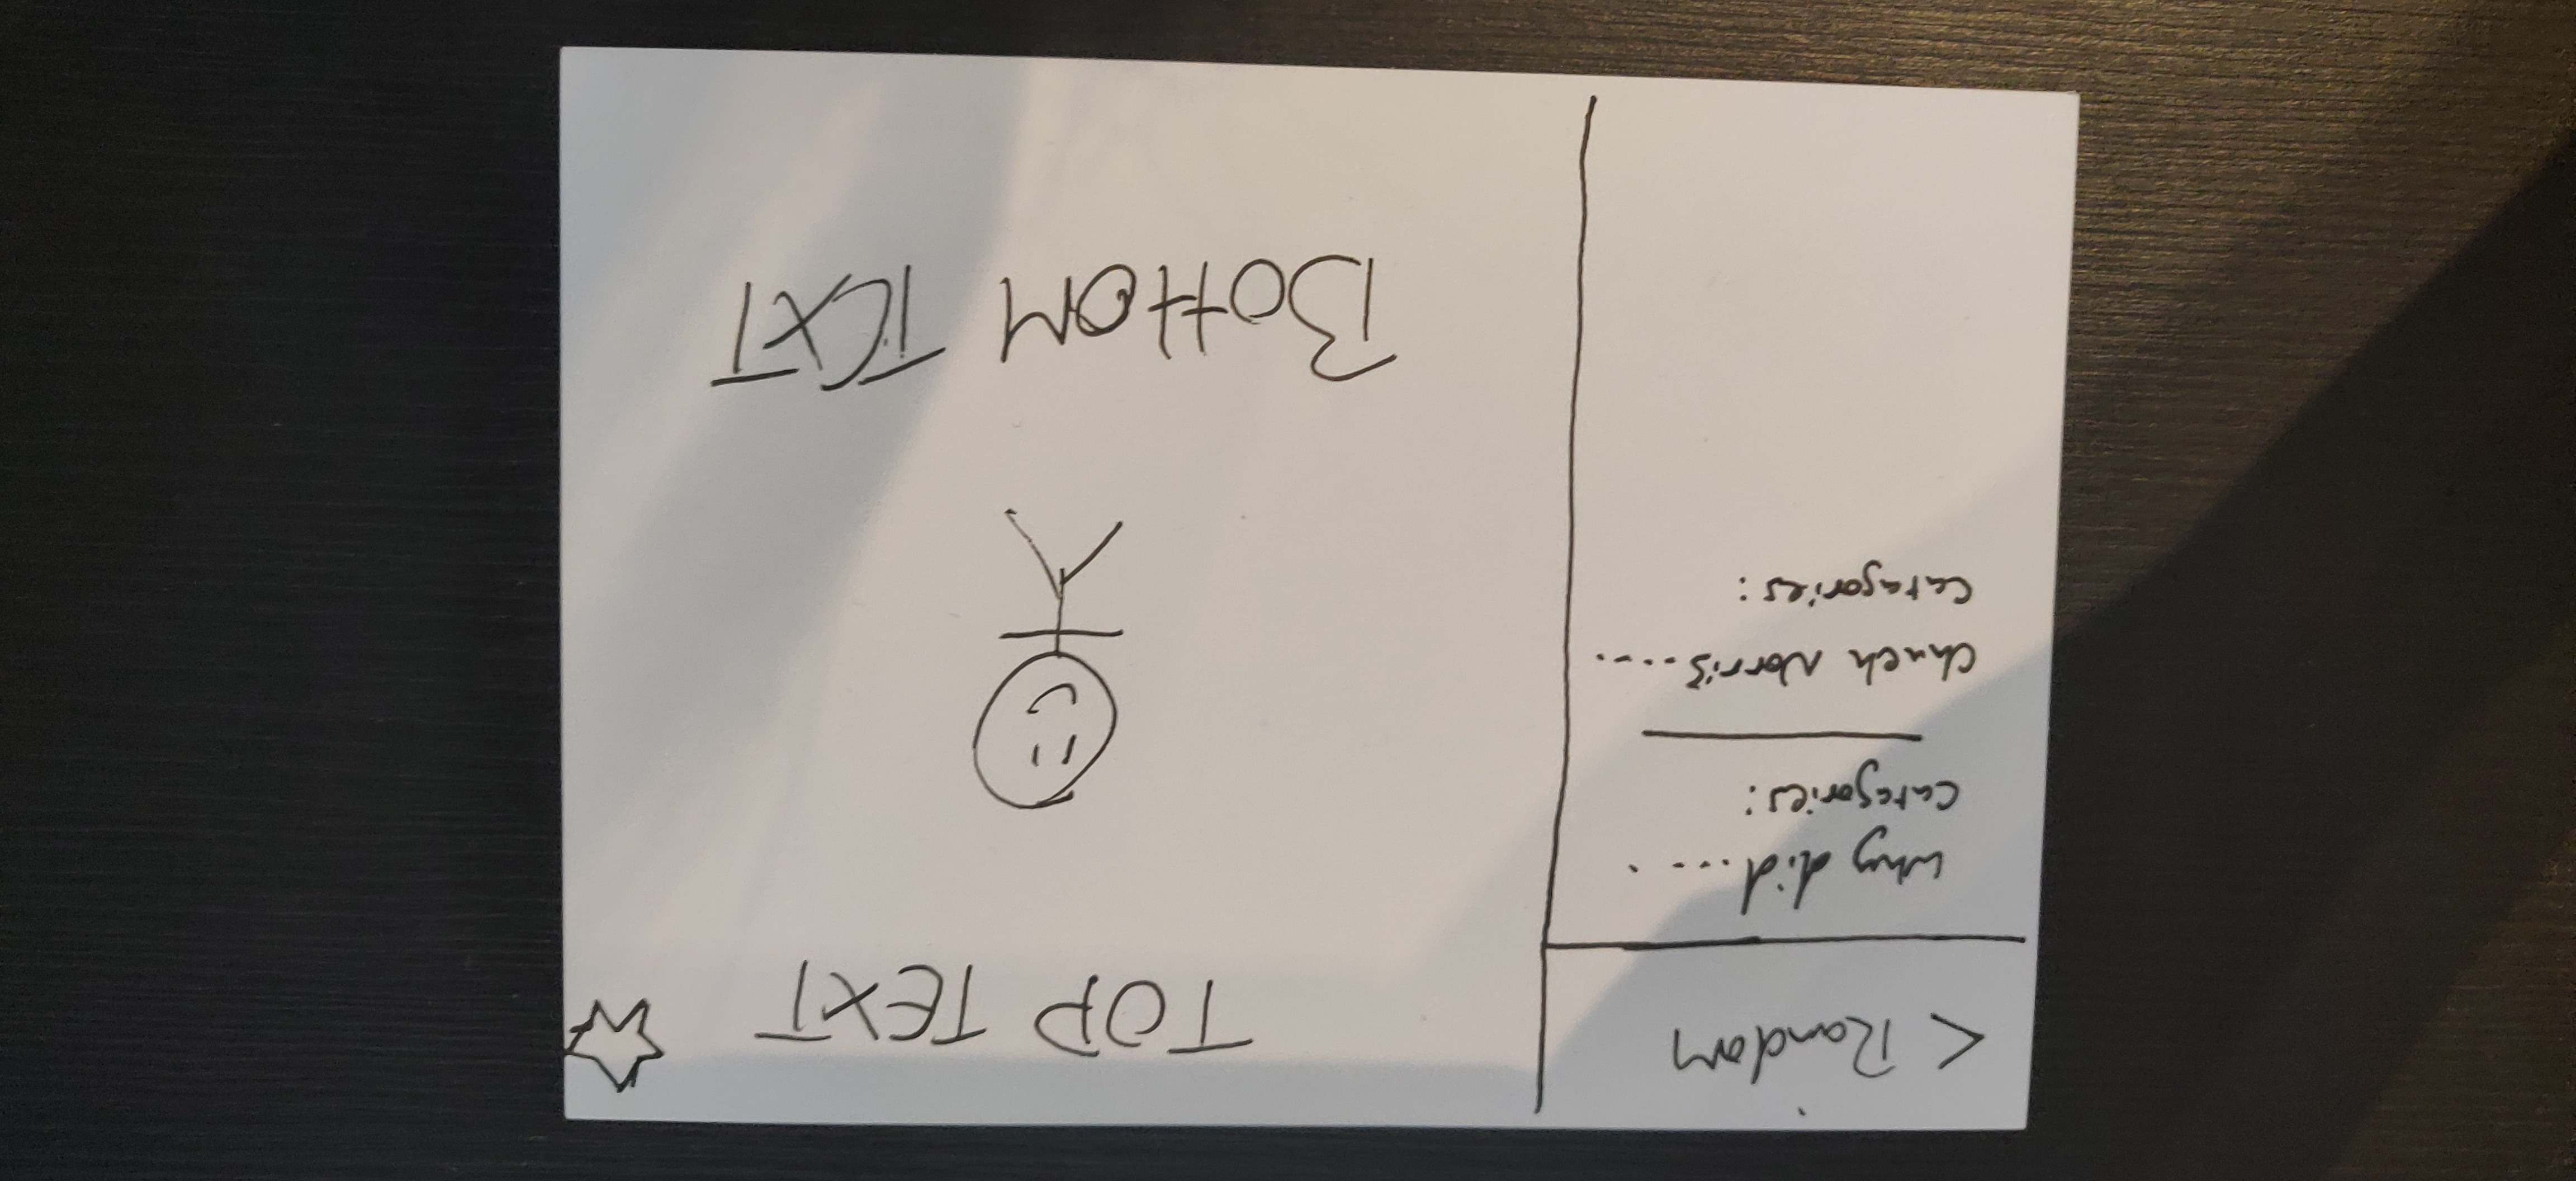 < Random
Why did....
Catagories:
Chuck Norris.....
Catagories:
TOP TEXT
BOTTOM TEXT